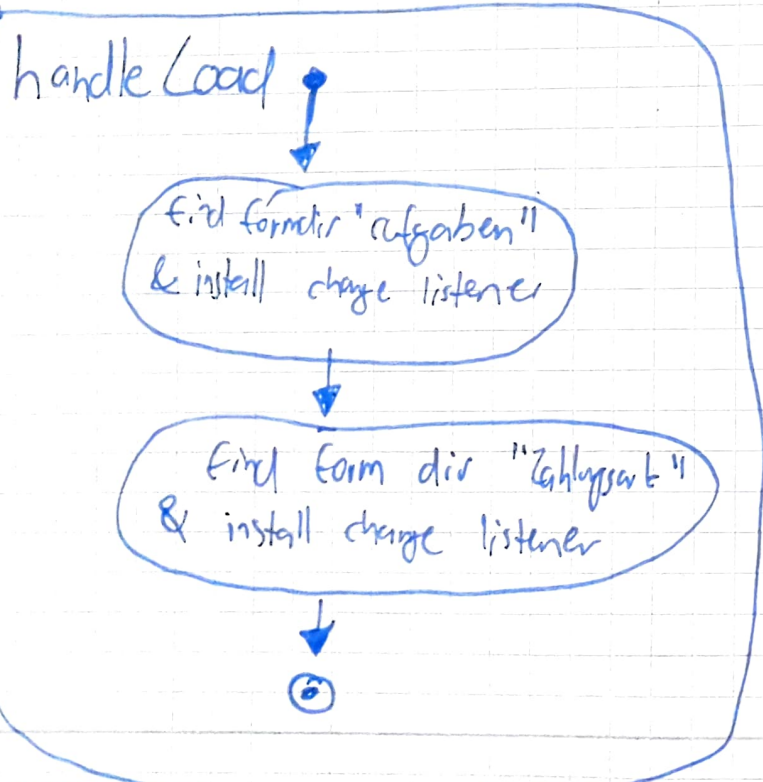 handleLoad
find formdir "aufgaben"
& install change listener
find form dir "Zahlungsart"
& install change listener